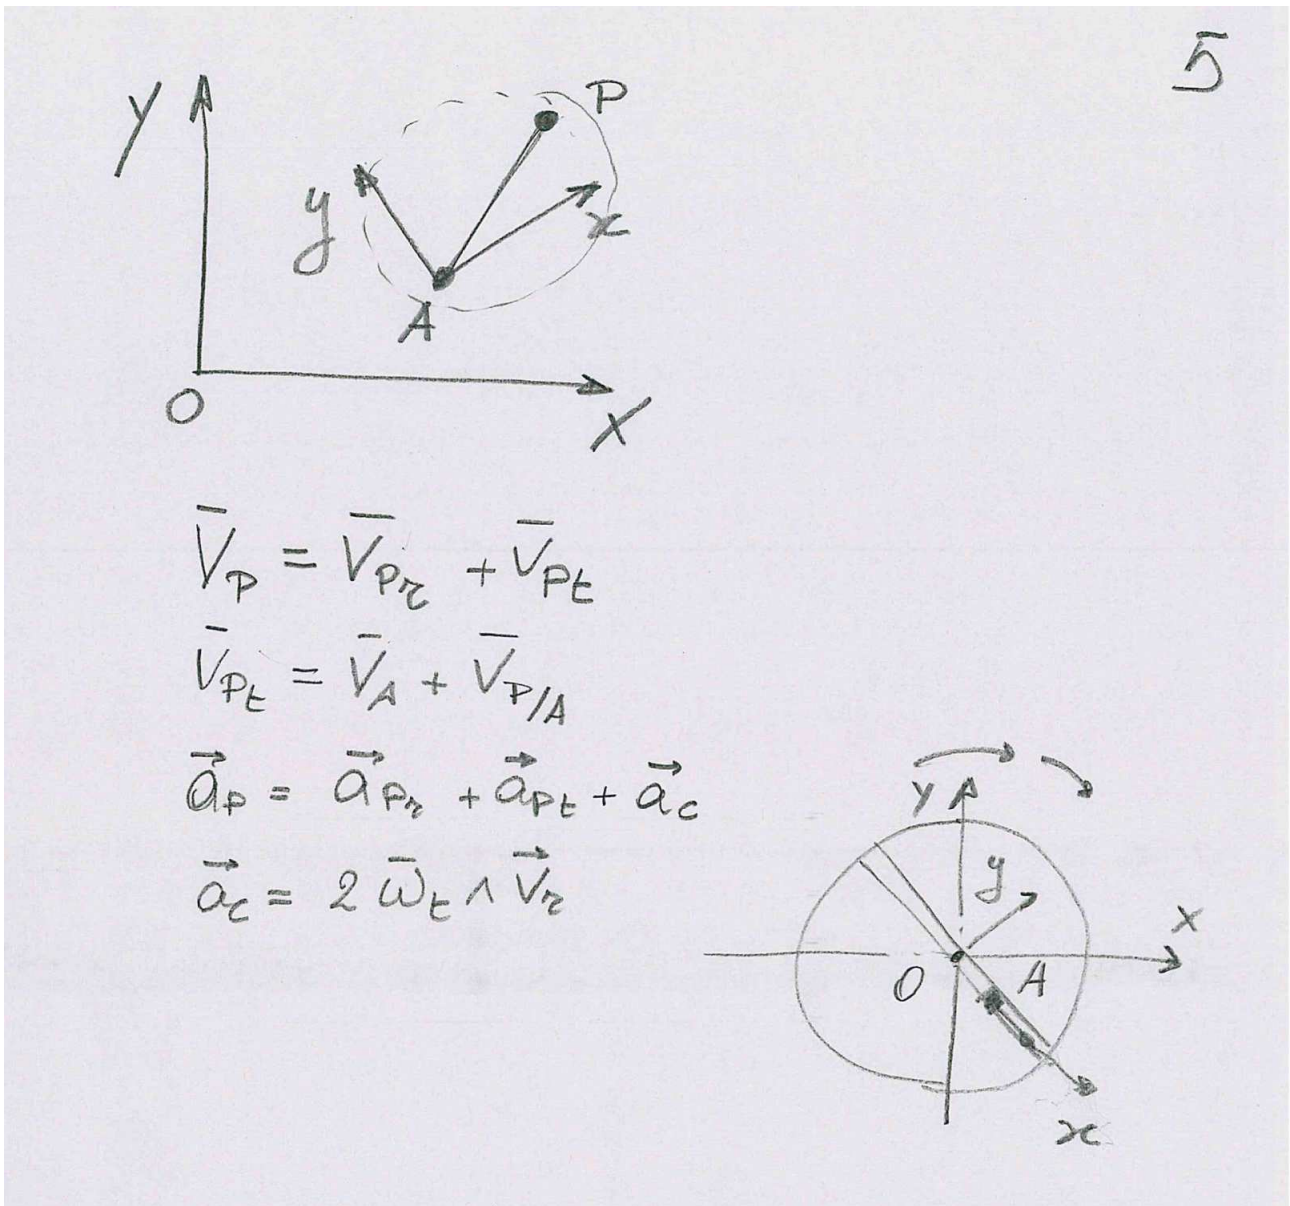 5
Y
P
y
x
A
O
X
V̄_P = V̄_Pr + V̄_Pt
V̄_Pt = V̄_A + V̄_P/A
a⃗_P = a⃗_Pr + a⃗_Pt + a⃗_c
a⃗_c = 2 ω̄_t ∧ V⃗_r
Y
y
X
O A
x